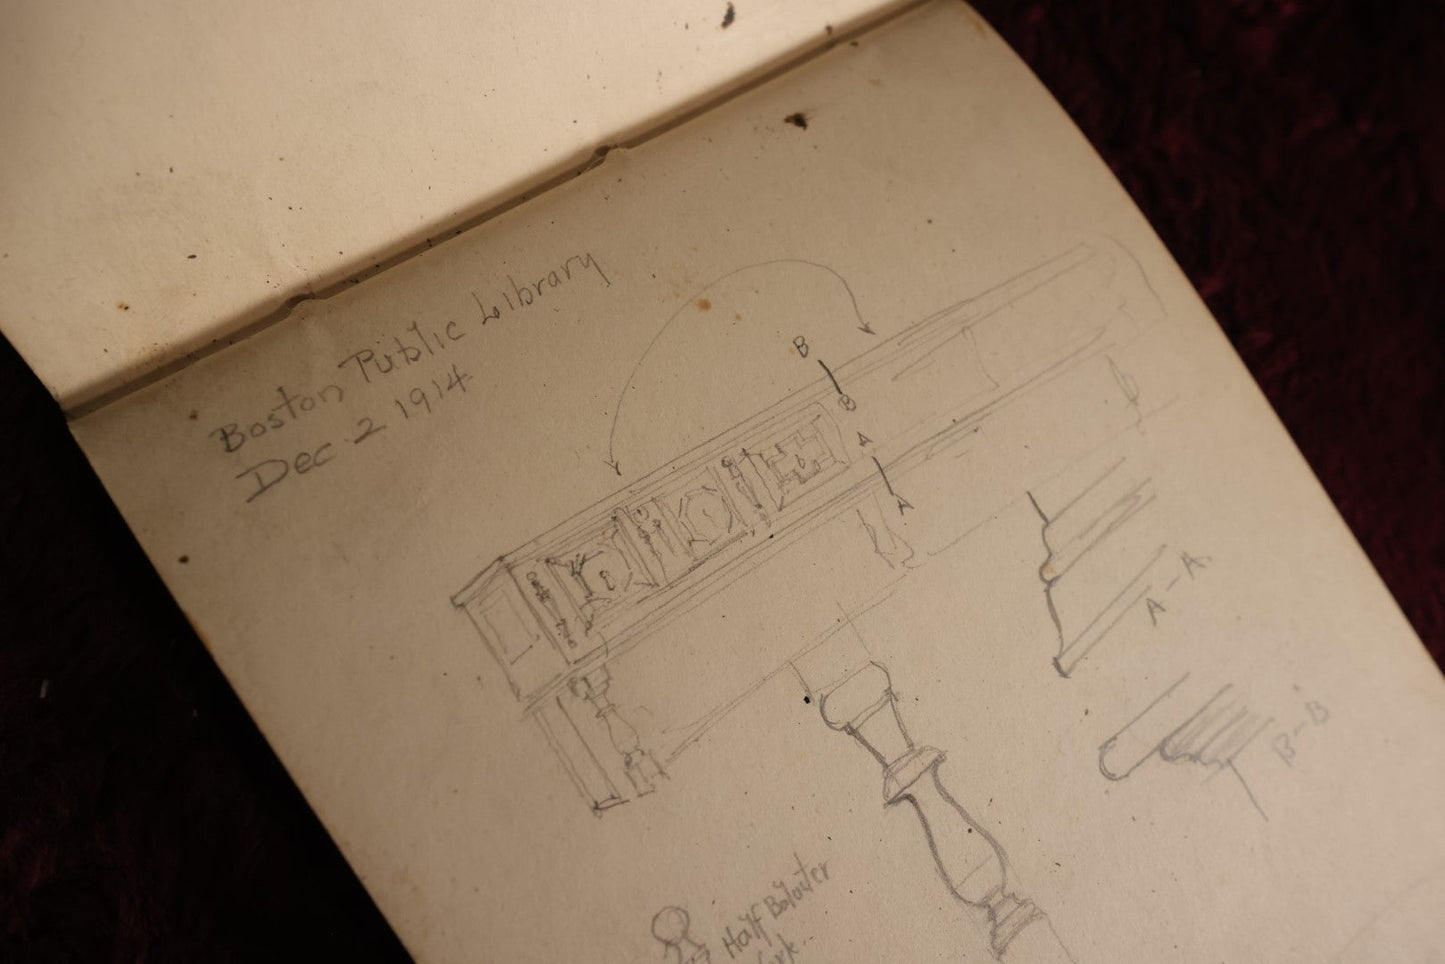 Boston Public Library
Dec 2 1914
B
B
A
A
A-A.
B-B
Half Baluster